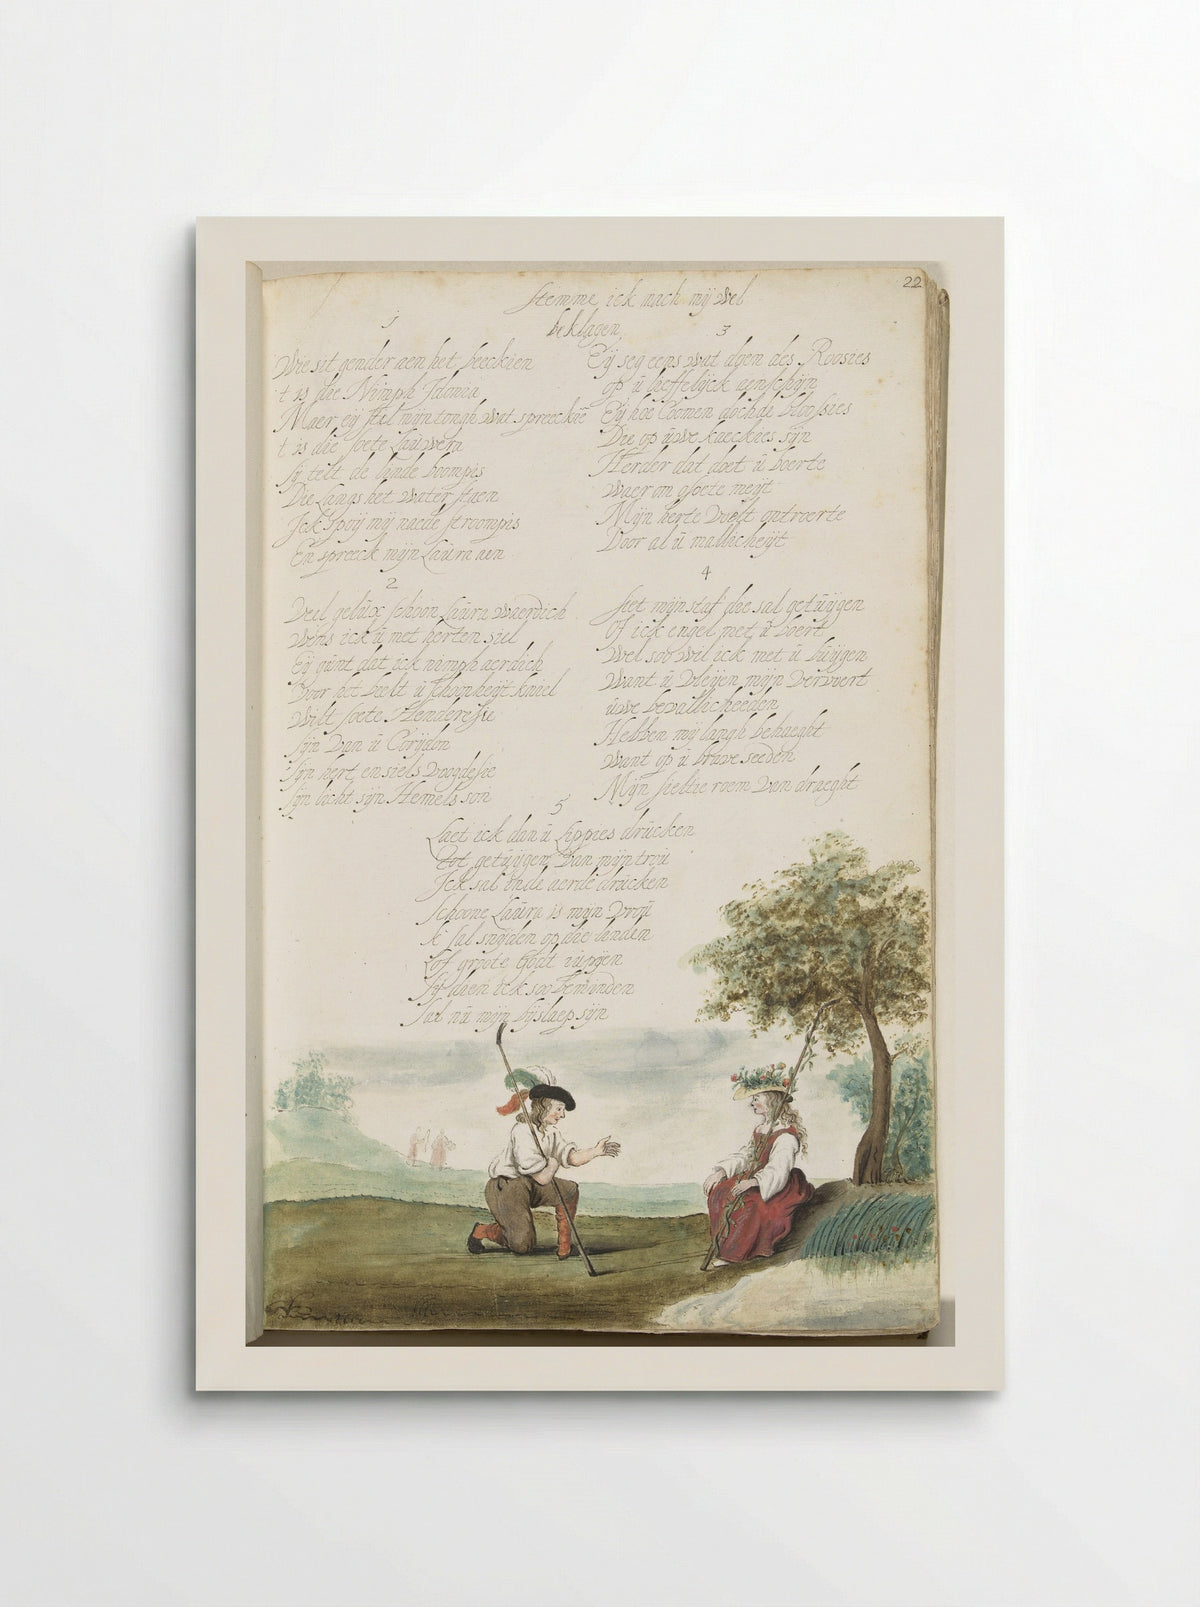 22
Stemme ick mach mij wel
beklagen
1
Wie sit gender aen het beeckien
t is die Nimph
Maer eij stil mijn tongh wat spreeckie
t is die soete
Sij telt de linde boompis
Die langs het water staen
Ick spoij mij naede stroompis
En spreeck mijn Laura aen
2
Veel gelux schoon Laura waerdich
Wens ick u met herten siel
Eij gunt dat ick nimph aerdich
Voor het beelt u schoonheijt kniel
Wilt soete Henderesie
Sijn van u Corijdon
Sijn hert en siels voogdesie
Sijn licht sijn Hemels son
3
Eij seg eens wat doen des Roosies
op u lieffelijck aenschijn
Eij hoe comen doch de bloosies
Die op uwe kaeckies sijn
Herder dat doet u boerte
Waerom soete meijt
Mijn herte voelt ontroerte
Door al u mallicheijt
4
Siet mijn staf die sal getuijgen
Of ick engel met u boert
Wel soo wil ick met u buijgen
Want u vleijen mijn vervoert
uwe bevallicheeden
Hebben mij langh behaeght
Want op u brave seeden
Mijn sieltie roem van draeght
5
Laet ick dan u lippies drucken
Tot getuijgen van mijn trou
Ick sal inde aerde drucken
Schoone Laura is mijn vrou
Ik sal snijden op die linden
Lof groote Godt
Sij dien ick soo beminden
Sal nu mijn bijslaep sijn